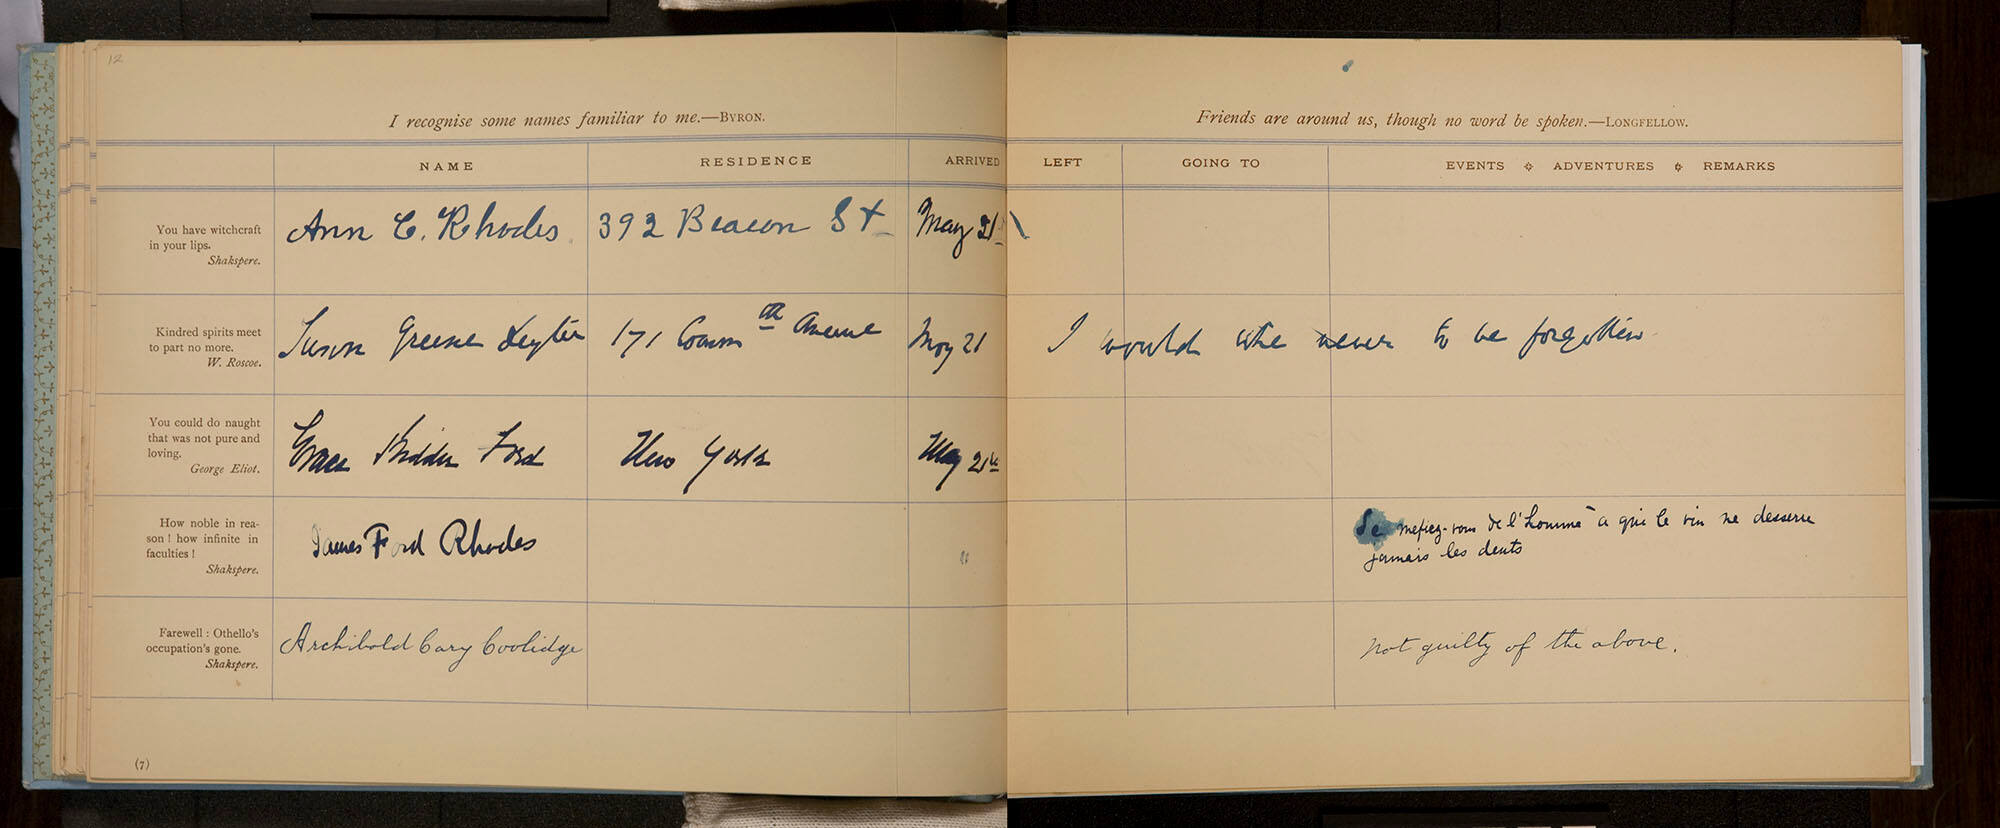 12
I recognise some names familiar to me.—BYRON.
NAME RESIDENCE ARRIVED
You have witchcraft
in your lips.
Shakspere.
Ann C. Rhodes 392 Beacon St May 21
Kindred spirits meet
to part no more.
W. Roscoe.
Susan Greene 171 Comm th Avenue May 21
You could do naught
that was not pure and
loving.
George Eliot.
Grace Kidder Ford New York May 21
How noble in rea-
son ! how infinite in
faculties !
Shakspere.
James Ford Rhodes
Farewell : Othello's
occupation's gone.
Shakspere.
Archibald Cary Coolidge
(7)
Friends are around us, though no word be spoken.—LONGFELLOW.
LEFT GOING TO EVENTS ADVENTURES REMARKS
I would like never to be forgotten
mefiez-vous de l'homme a qui le vin ne desserre
jamais les dents
Not guilty of the above.